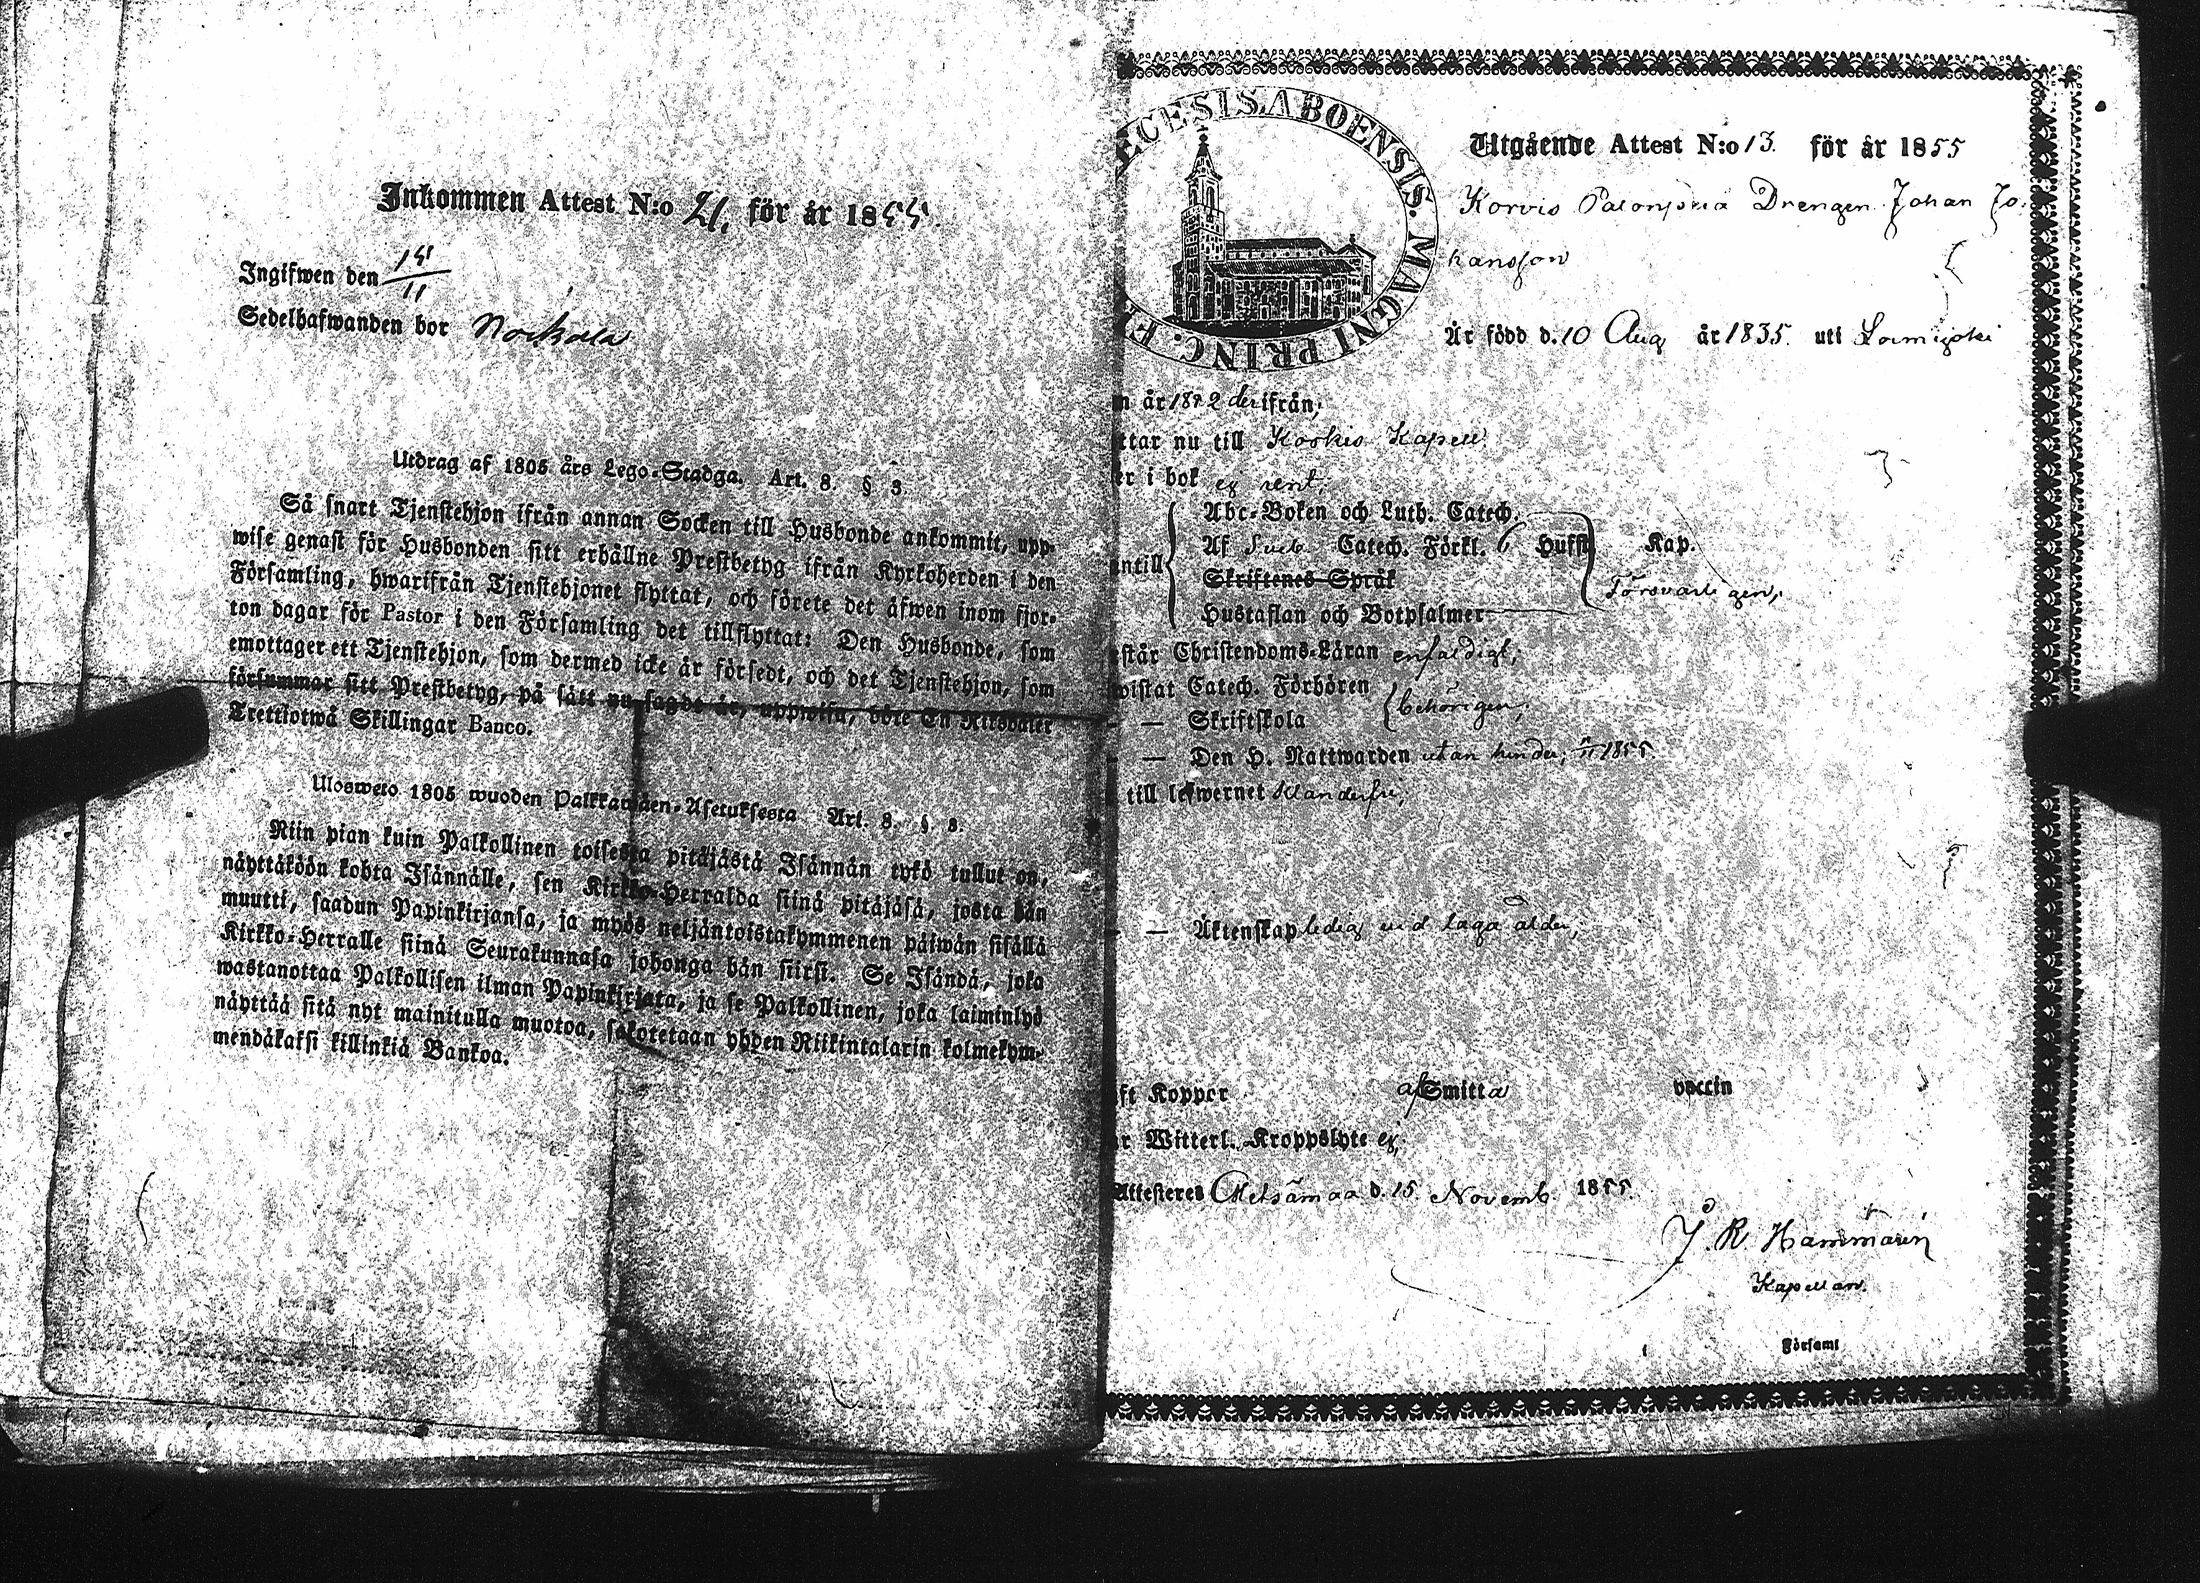 Inkommen Attest N:o 21, för år 1855.
Ingifwen den 15/11
Sedelhafwanden bor
Utdrag af 1805 års Lego-Stadga. Art. 8. § 3
Så snart Tjenstehjon ifrån annan Socken till Husbonde ankommit, upp-
wise genast för Husbonden sitt erhållne Prestbetyg ifrån Kyrkoherden i den
Församling, hwarifrån Tjenstehjonet flyttat, och förete det äfwen inom fjor-
ton dagar för Pastor i den Församling det tillflyttat: Den Husbonde, som
emottager ett Tjenstehjon, som dermed icke är försedt, och det Tjenstehjon, som
försummar sitt Prestbetyg, på sätt nu sagdt är, uppwisa, böte En Riksdaler
Trettiotwå Skillingar Banco.
Ulosweto 1805 wuoden Palkkawäen-Asetuksesta Art. 8. §. 3.
Niin pian kuin Palkollinen toisesta pitäjästä Isännän tykö tullut on,
näyttäköön kohta Isännälle, sen Kirkko-Herralda siinä pitäjäsä, josta hän
muutti, saadun Papinkirjansa, ja myös neljäntoistakymmenen päiwän sisällä
Kirkko-Herralle siinä Seurakunnasa johonga hän siirsi. Se Isändä, joka
wastanottaa Palkollisen ilman Papinkirjata, ja se Palkollinen, joka laiminlyö
näyttää sitä nyt mainitulla muotoa, sakotetaan yhden Riikintalarin kolmekym-
mendäkaksi killinkiä Bankoa.
ECESIS. ABOENSIS. MAGNI PRINC. F
Utgående Attest N:o 13. för år 1855
Korvis Drengen Johan Jo-
hansson
Är född d. 10 Aug år 1835. uti Loimijoki
n år 1842 derifrån;
ttar nu till Koskis Kapell
er i bok ej rent;
Abc-Boken och Luth. Catech.
antill Af Sveb. Catech. Förkl. 6 Hufst Kap.
Skriftenes Språk
Försvarligen,
Hustaflan och Botpsalmer
står Christendoms-Läran enfaldigt;
wistat Catech. Förhören
behörigen;
— Skriftskola
— Den H. Nattwarden utan hinder, 1855.
till lefwernet klanderfri;
— Äktenskap ledig vid laga ålder,
ft Koppor af Smitta vaccin
r Witterl. Kroppslyte ej;
Attesteres Metsämaa d. 15. Novemb. 1855.
J. R. Hammarén
Kapellan.
Församl